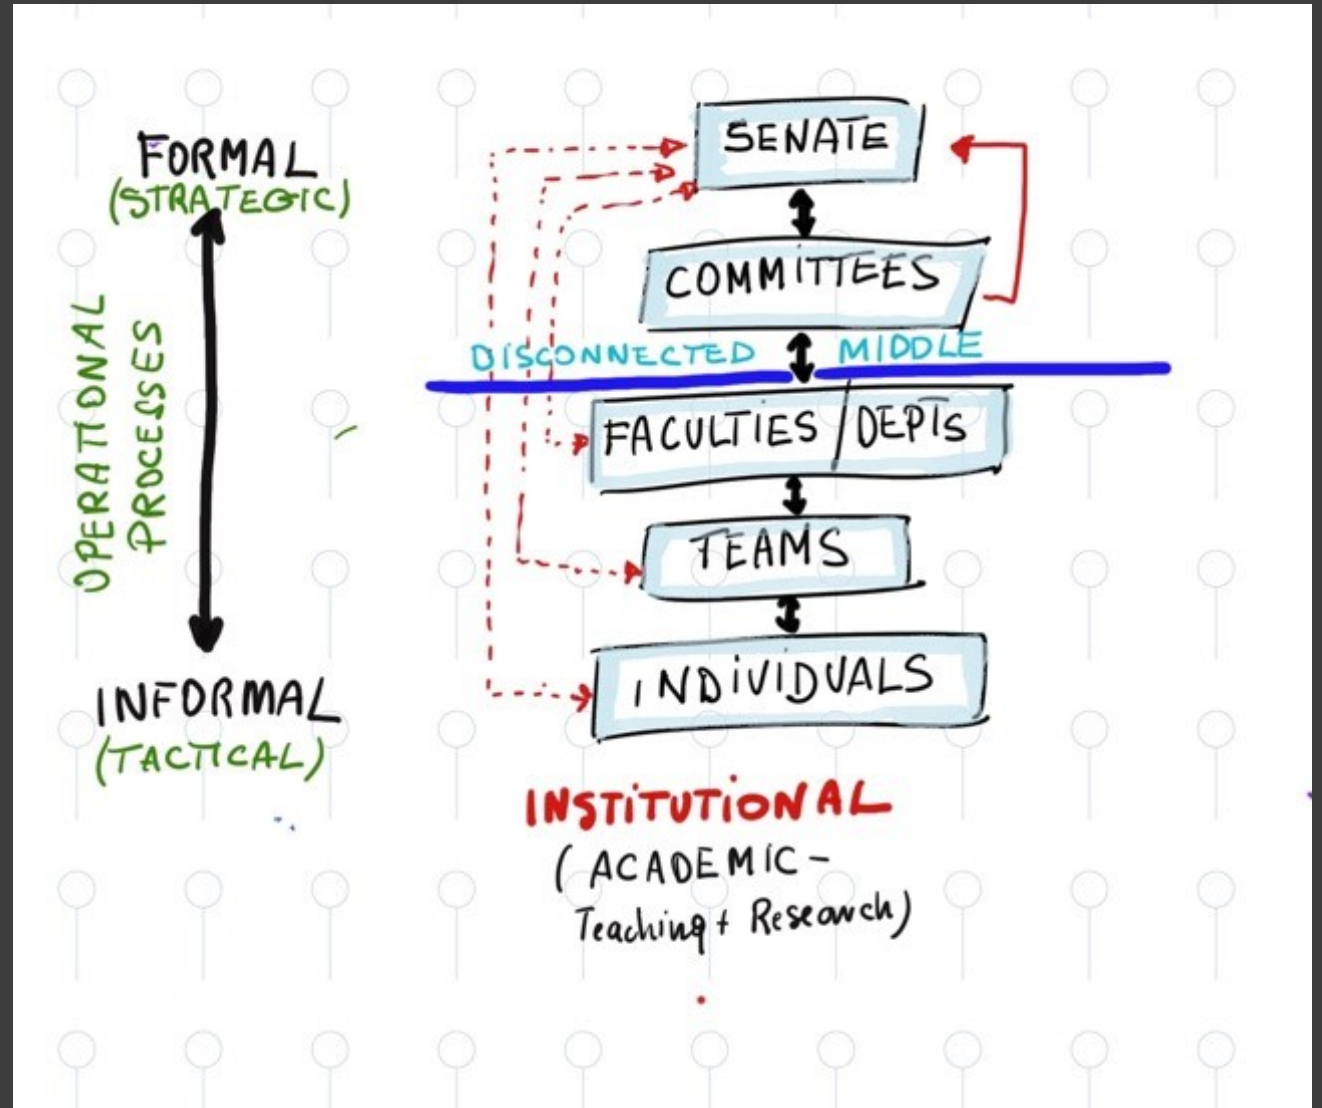 FORMAL
(STRATEGIC)
OPERATIONAL
PROCESSES
INFORMAL
(TACTICAL)
SENATE
COMMITTEES
DISCONNECTED MIDDLE
FACULTIES / DEPTS
TEAMS
INDIVIDUALS
INSTITUTIONAL
(ACADEMIC -
Teaching + Research)